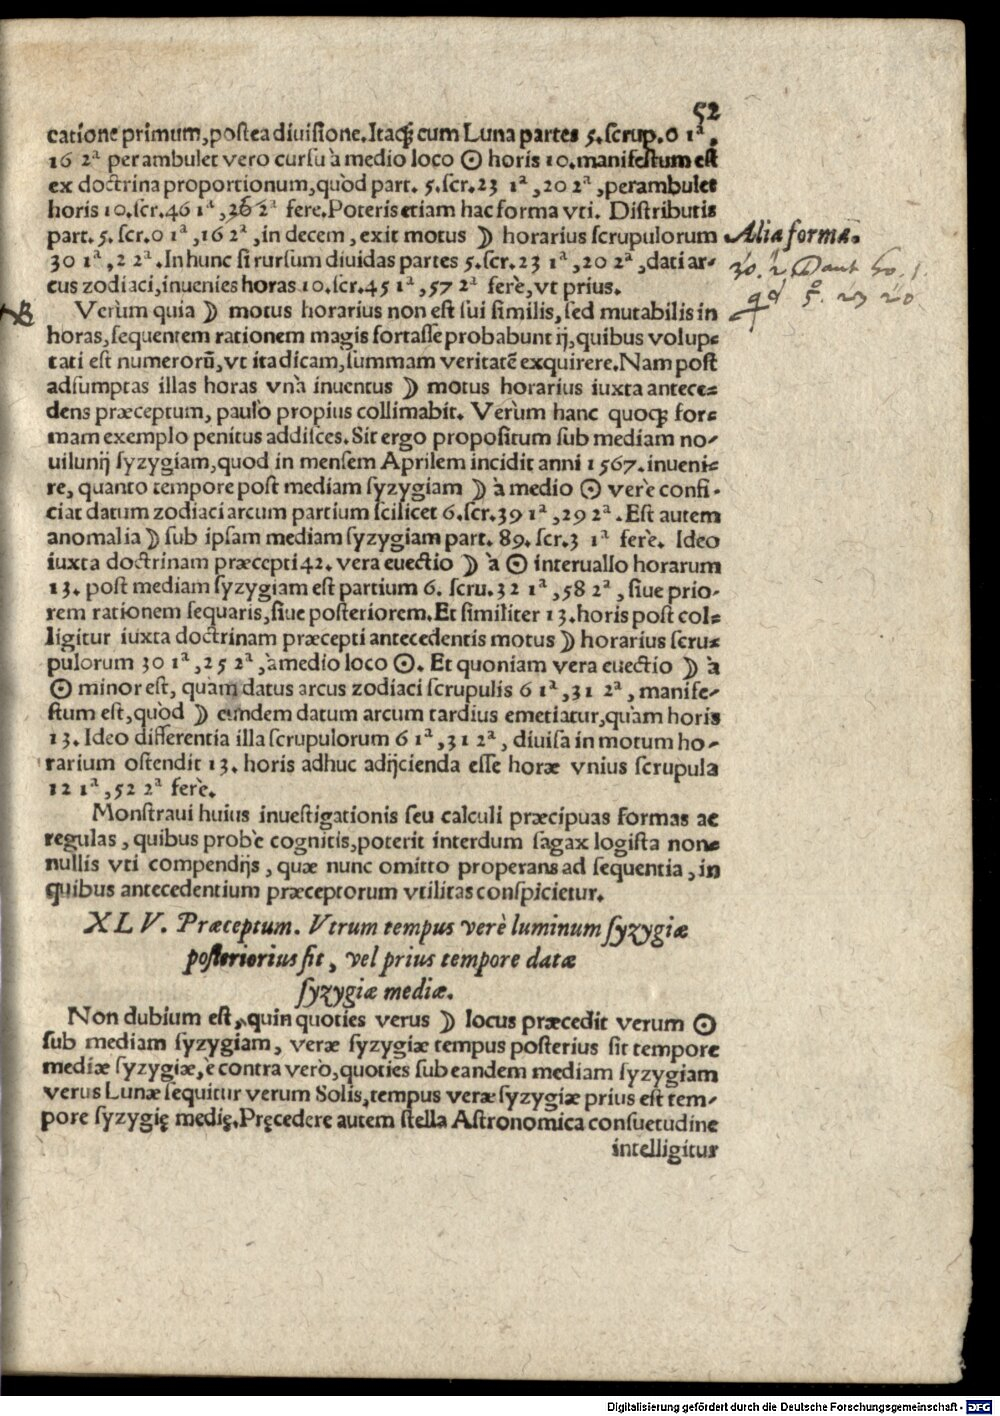 52
catione primum, postea diuisione. Itaq; cum Luna partes 5. scrup. 0 1ª,
16 2ª perambulet vero cursu à medio loco ☉ horis 10. manifestum est
ex doctrina proportionum, quòd part. 5. scr. 23 1ª, 20 2ª, perambulet
horis 10. scr. 46 1ª, 36 2ª fere. Poteris etiam hac forma vti. Distributis
part. 5. scr. 0 1ª, 16 2ª, in decem, exit motus ☽ horarius scrupulorum
Alia forma.
30 1ª, 2 2ª. In hunc si rursum diuidas partes 5. scr. 23 1ª, 20 2ª, dati ar-
30. 2. dant 60. 1.
cus zodiaci, inuenies horas 10. scr. 45 1ª, 57 2ª ferè, vt prius.
qd 5. 23 20
Verùm quia ☽ motus horarius non est sui similis, sed mutabilis in
horas, sequentem rationem magis fortasse probabunt ij, quibus volup-
tati est numerorū, vt ita dicam, summam veritatē exquirere. Nam post
adsumptas illas horas vnà inuentus ☽ motus horarius iuxta antece-
dens præceptum, paulò propius collimabit. Verùm hanc quoq; for-
mam exemplo penitus addisces. Sit ergo propositum sub mediam no-
uilunij syzygiam, quod in mensem Aprilem incidit anni 1567. inueni-
re, quanto tempore post mediam syzygiam ☽ à medio ☉ verè confi-
ciat datum zodiaci arcum partium scilicet 6. scr. 39 1ª, 29 2ª. Est autem
anomalia ☽ sub ipsam mediam syzygiam part. 89. scr. 3 1ª ferè. Ideo
iuxta doctrinam præcepti 42. vera euectio ☽ à ☉ interuallo horarum
13. post mediam syzygiam est partium 6. scru. 32 1ª, 58 2ª, siue prio-
rem rationem sequaris, siue posteriorem. Et similiter 13. horis post col-
ligitur iuxta doctrinam præcepti antecedentis motus ☽ horarius scru-
pulorum 30 1ª, 25 2ª, à medio loco ☉. Et quoniam vera euectio ☽ à
☉ minor est, quàm datus arcus zodiaci scrupulis 6 1ª, 31 2ª, manife-
stum est, quòd ☽ eundem datum arcum tardius emetiatur, quàm horis
13. Ideo differentia illa scrupulorum 6 1ª, 31 2ª, diuisa in motum ho-
rarium ostendit 13. horis adhuc adijcienda esse horæ vnius scrupula
12 1ª, 52 2ª ferè.
Monstraui huius inuestigationis seu calculi præcipuas formas ac
regulas, quibus probè cognitis, poterit interdum sagax logista non-
nullis vti compendijs, quæ nunc omitto properans ad sequentia, in
quibus antecedentium præceptorum vtilitas conspicietur.
XLV. Præceptum. Vtrum tempus verè luminum syzygiæ
posteriorius sit, vel prius tempore datæ
syzygiæ mediæ.
Non dubium est, quin quoties verus ☽ locus præcedit verum ☉
sub mediam syzygiam, veræ syzygiæ tempus posterius sit tempore
mediæ syzygiæ, è contra verò, quoties sub eandem mediam syzygiam
verus Lunæ sequitur verum Solis, tempus veræ syzygiæ prius est tem-
pore syzygię medię. Pręcedere autem stella Astronomica consuetudine
intelligitur
Digitalisierung gefördert durch die Deutsche Forschungsgemeinschaft - DFG